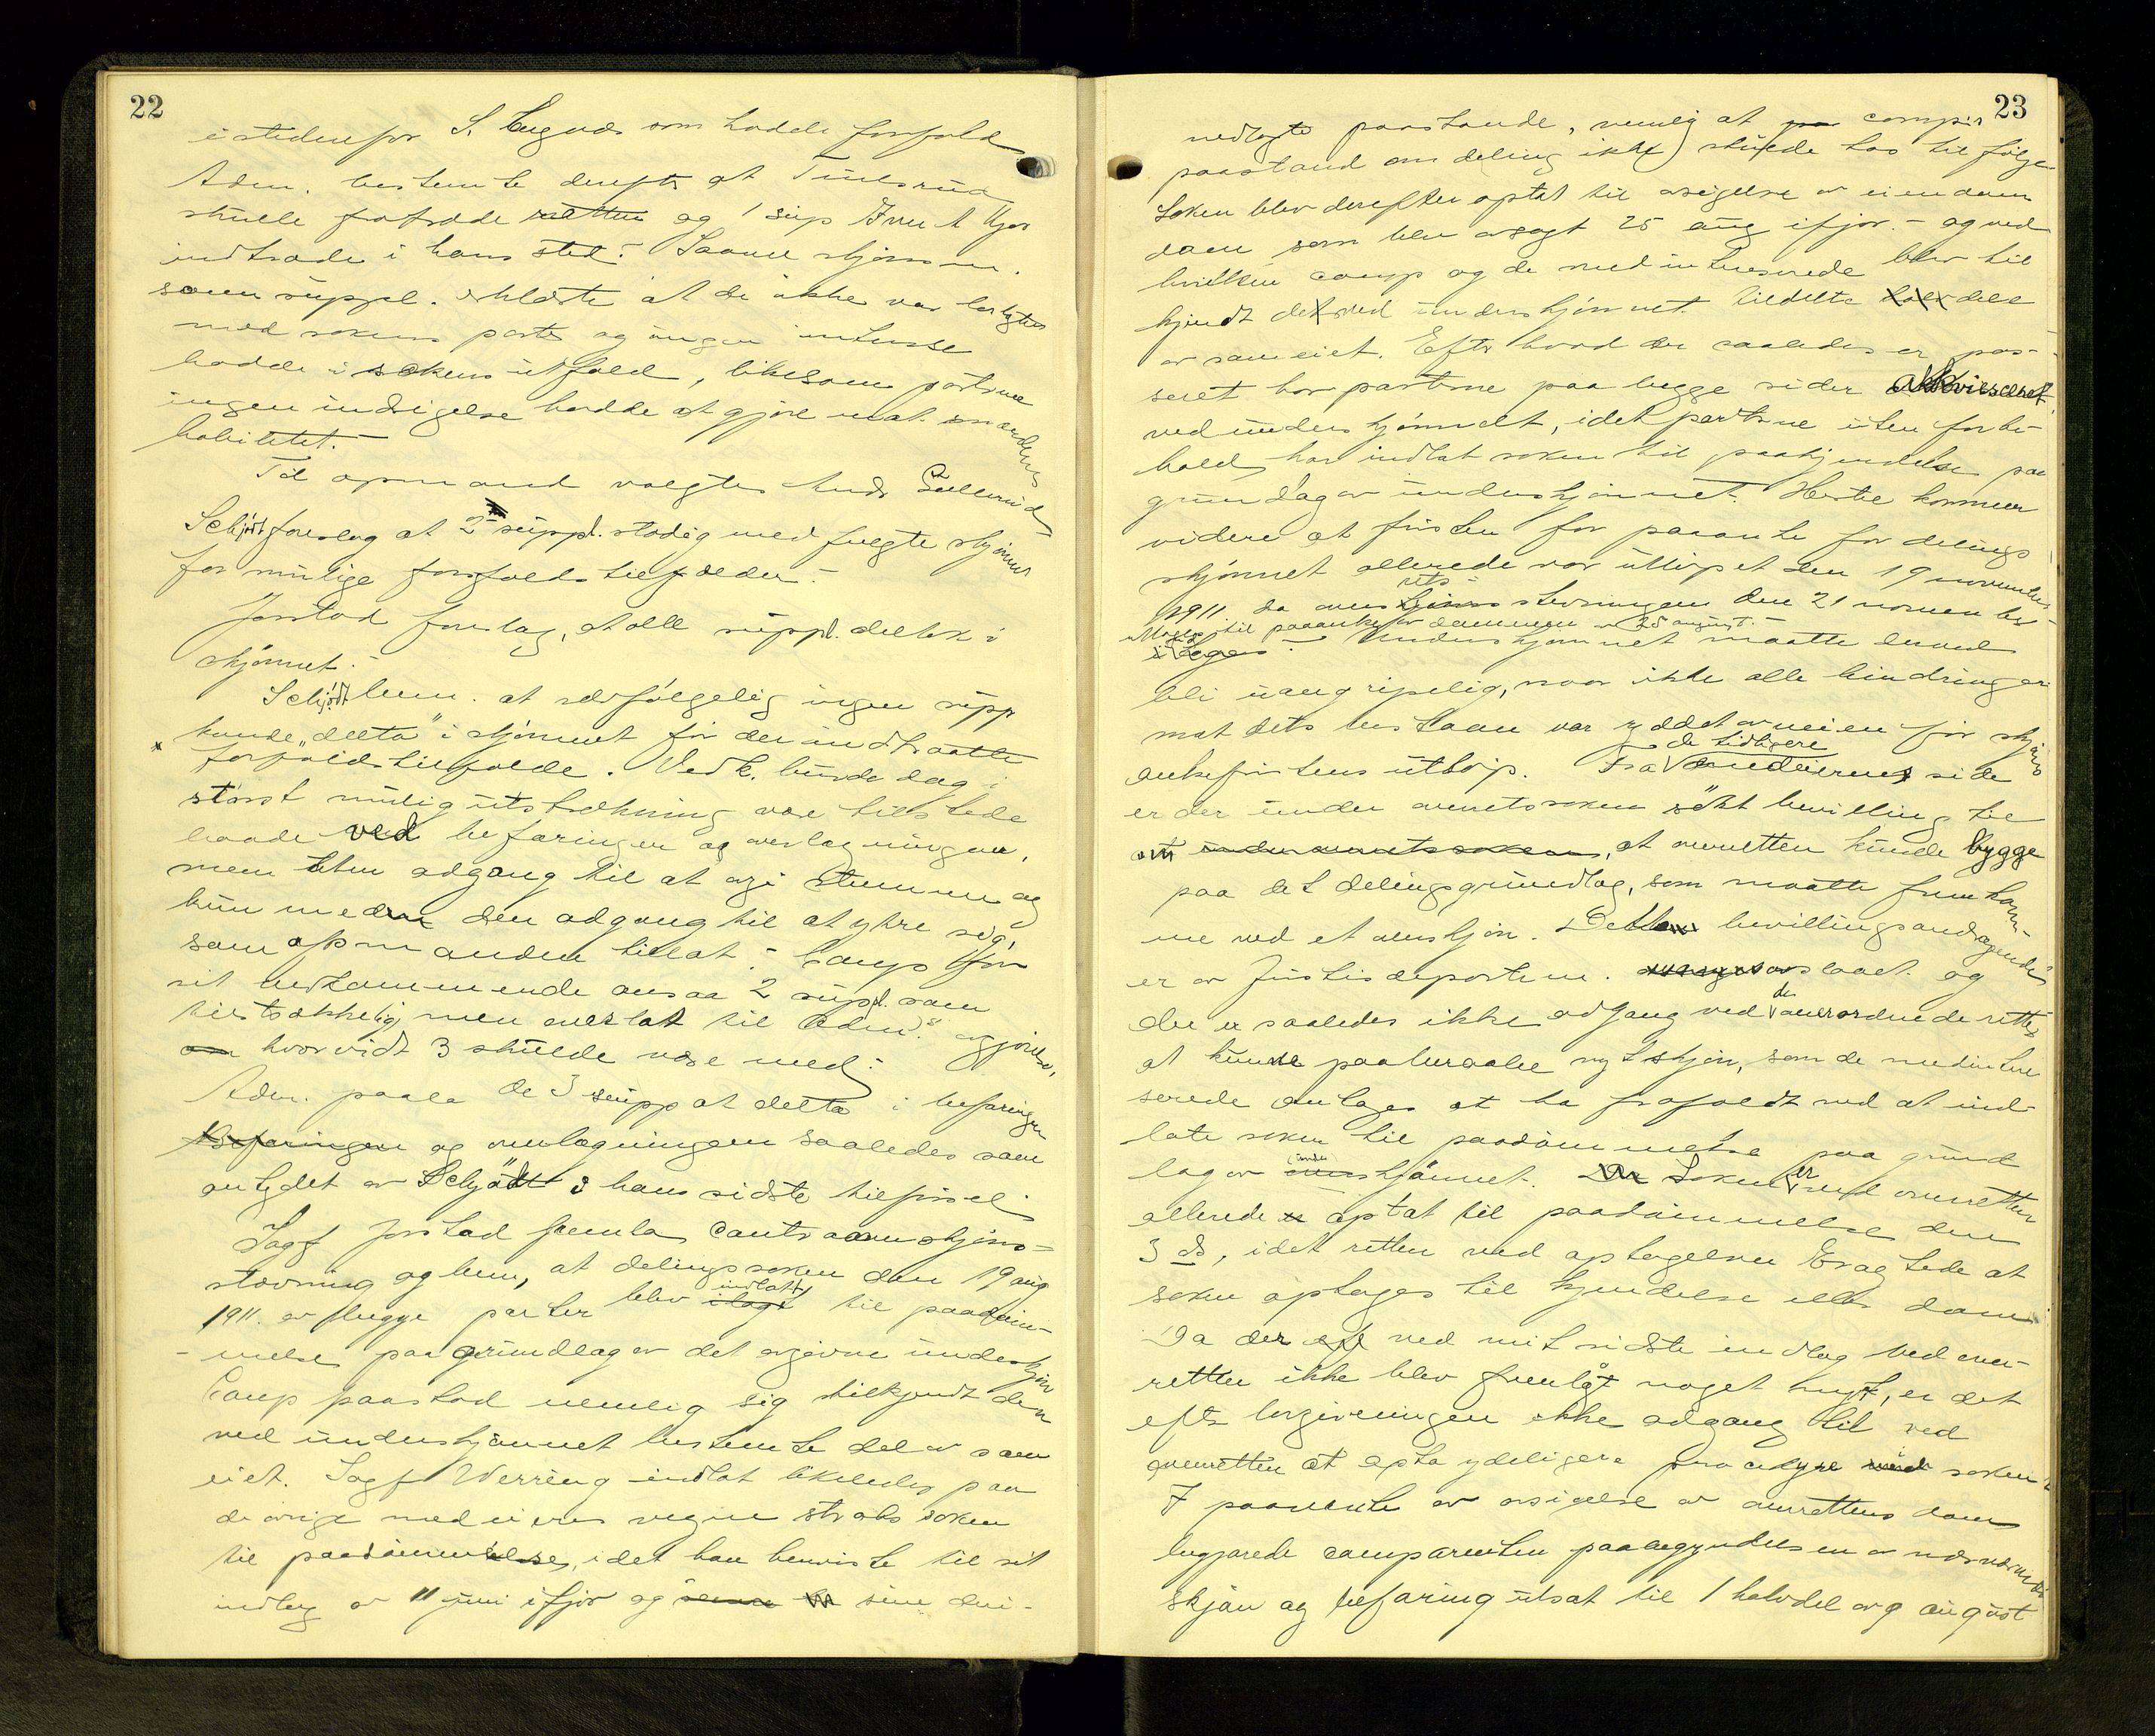 22
istedenfor S. som hadde forfald
Adm. bestemte derefter at
skulde fratræde retten og 1 sup
indtræde i hans sted. Samme skjønsm.
som suppl. erklærte at de ikke var beslægtet
med sakens parter og ingen interesse
hadde i sakens utfald, likesom parterne
ingen indsigelse hadde at gjøre mot mændenes
habilitet.
Til opmand valgtes Andr
Schjødt foreslog at 2 suppl. stadig med fulgte skjønnet
for mulige forfaldstilfælder.
Jorstad foreslog, at alle suppl. deltok i
skjønnet.
Schjødt bem. at selvfølgelig ingen supp
kunde "delta" i skjønnet før der indtraatte
forfaldstilfælde. Vedk. burde dog i
størst mulig utstrækning være tilstede
baade ved befaringen og overlægningen,
men uten adgang til at avgi stemme og
kun med den adgang til at ytre sig,
som opmanden tillat. Comp for
sit vedkommende ansaa 2 suppl. som
tilstrækkelig men overlot til adm's avgjørelse,
om hvorvidt 3 skulde være med.
Adm. paala de 3 supp at delta i befaringen
befaringen og overlægningen saaledes som
antydet av Schjødt i hans sidste tilførsel.
Sagf Jorstad fremla contraoverskjøns-
stevning og bem, at delingssaken den 19 aug
1911. av begge parter blev ilagt indlatt til paadøm-
melse paa grundlag av det avgivne underskjøn
Comp paastod nemlig sig tilkjendt den
ved underskjønnet bestemte del av sam
eiet. Sagf Werring indlot likeledes paa
de øvrige medeieres vegne straks saken
til paadømmelse, idet han henviste til sit
indlæg av 11 juni ifjor og sine deri-
23
nedlagte paastande, nemlig at comp's
paastand om deling ikke skulde tas til følge
Saken blev derefter optat til avsigelse av eiendom
dom som blev avsagt 25 aug ifjor. - og ved
hvilken comp og de medinteresserede blev til
kjendt det ved underskjønnet tildelte dele
av sameiet. Efter hvad der saaledes er pas-
seret har parterne paa begge sider akkviesceret
ved underskjønnet, idet parterne uten forbe-
hold har indlat saken til paakjendelse paa
grundlag av underskjønnet. Hertil kommer
videre at fristen for paaanke for delings
skjønnet allerede var utløpet den 19 november
1911 da overskjøns rets stevningen den 21 novem blev
uttages til paaanke av dommen av 25 august.-
ittages. - Underskjønnet maatte derved
bli uangripelig, naar ikke alle hindringer
mot dets bestaaen var ryddet av veien før skjøns
ankefristens utløp. Fra de tidligere medeiernes side
er der under overretssaken søkt bevilling til
at under overretssaken, at overretten kunde bygge
paa det delingsgrundlag, som maatte fremkom-
me ved et overskjøn. Dette bevillingsandragende
er av Justisdepartem. avslaaet og
der er saaledes ikke adgang ved de overordnede retter
at kunde paaberaabe nyt skjøn, som de medinter
serede antages at ha frafaldt ved at ind-
late saken til paadømmelse paa grund
lag av over under skjønnet. Saken er ved overretten
allerede optat til paadømmelse den
3 ds, idet retten ved optagelsen tede at
saken optages til kjendelse eller dom
Da der ved mit sidste indlæg ved over-
retten ikke blev fremlagt noget nyt, er det
efter lovgivningen ikke adgang til ved
overretten at opta ydeligere procedyre med saken
I paavente av avsigelse av overrettens dom
begjærede comparenten paabegyndelsen av nærværende
skjøn og befaring utsat til 1 halvdel av august